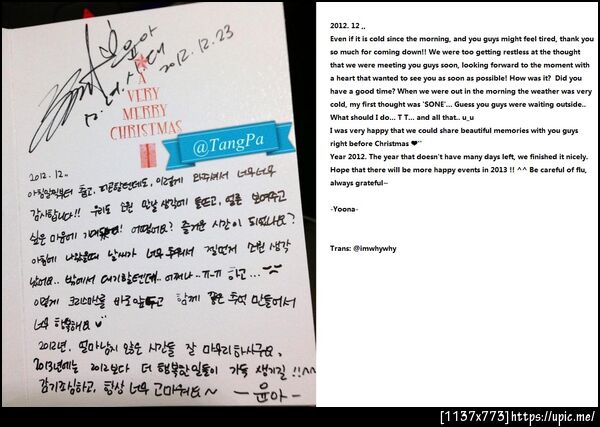 윤아
소녀시대
2012.12.23
A
VERY
MERRY
CHRISTMAS
@TangPa
2012. 12..
아침일찍부터 춥고, 피곤할텐데도, 이렇게 와주셔서 너무너무
감사합니다!! 우리도 소원 만날 생각에 들뜨고, 얼른 보여주고
싶은 마음에 기대했어요! 어땠어요? 즐거운 시간이 되셨나요?
아침에 나왔을때 날씨가 너무 추워서 제일먼저 소원 생각
났어요.. 밖에서 대기할텐데.. 어쩌나.. ㅠ-ㅠ 하고...
이렇게 크리스마스를 바로 앞두고 함께 좋은 추억 만들어서
너무 행복해요
2012년, 얼마남지 않은 시간들 잘 마무리하시구요,
2013년에는 2012보다 더 행복한일들이 가득 생기길!! ^^
감기조심하고, 항상 너무 고마워요~
-윤아-
2012. 12 ,,
Even if it is cold since the morning, and you guys might feel tired, thank you
so much for coming down!! We were too getting restless at the thought
that we were meeting you guys soon, looking forward to the moment with
a heart that wanted to see you as soon as possible! How was it? Did you
have a good time? When we were out in the morning the weather was very
cold, my first thought was 'SONE'... Guess you guys were waiting outside..
What should I do... T T... and all that.. u_u
I was very happy that we could share beautiful memories with you guys
right before Christmas ❤~~
Year 2012. The year that doesn't have many days left, we finished it nicely.
Hope that there will be more happy events in 2013 !! ^^ Be careful of flu,
always grateful~
-Yoona-
Trans: @imwhywhy
[1137x773]https://upic.me/